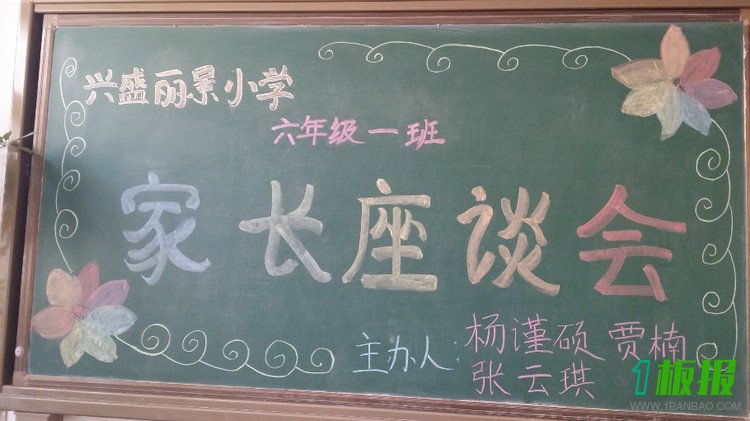 兴盛丽景小学
六年级一班
家长座谈会
主办人:杨谨硕 贾楠
张云琪
1板报
WWW.1BANBAO.COM